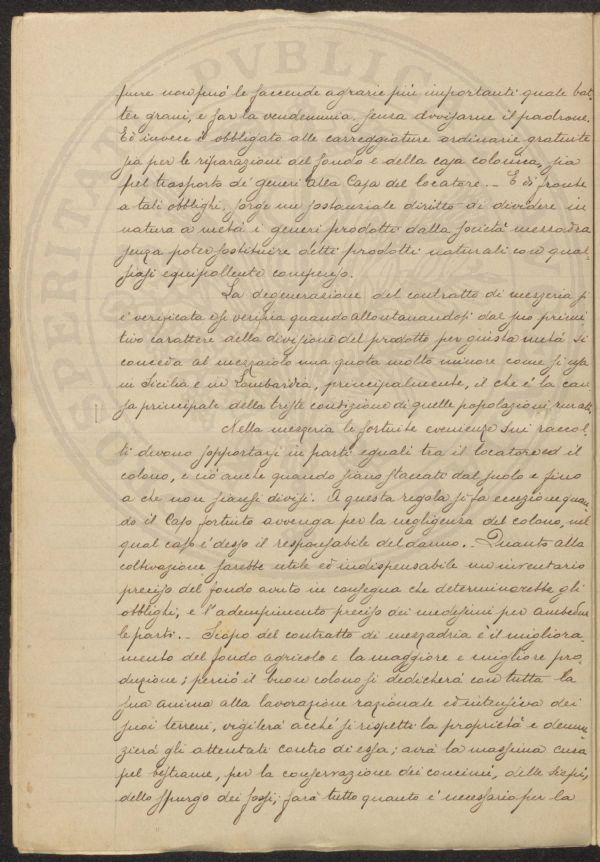 pure non può le faccende agrarie più importanti quale bat-
ter grani, e far la vendemmia, senza avvisarne il padrone.
Ed invece è obbligato alle carreggiature ordinarie gratuite
sia per le riparazioni del fondo e della casa colonica, sia
pel trasporto de' generi alla Casa del locatore. _ E di fronte
a tali obblighi, sorge un sostanziale diritto di dividere in
natura a metà i generi prodotti dalla società mezzadra
senza poter sostituire detti prodotti naturali con qual-
siasi equipollente compenso.
La degenerazione del contratto di mezzeria si
è verificata e si verifica quando allontanandosi dal suo primi
tivo carattere della divisione del prodotto per giusta metà si
conceda al mezzaiolo una quota molto minore come si usa
in Sicilia e in Lombardia, principalmente, il che è la cau-
sa principale della triste condizione di quelle popolazioni rurali.
Nella mezzeria le fortuite evenienze sui raccol-
ti devono sopportarsi in parti eguali tra il locatore ed il
colono, e ciò anche quando siano staccati dal suolo e fino
a che non siansi divisi. A questa regola si fa eccezione quan-
do il Caso fortuito avvenga per la negligenza del colono, nel
qual caso è desso il responsabile del danno. _ Quanto alla
coltivazione sarebbe utile ed indispensabile un inventario
preciso del fondo avuto in consegna che determinerebbe gli
obblighi, e l'adempimento preciso dei medesimi per ambedue
le parti. _ Scopo del contratto di mezzadria è il migliora-
mento del fondo agricolo e la maggiore e migliore pro-
duzione; perciò il buon colono si dedicherà con tutta la
sua anima alla lavorazione razionale ed intensiva dei
suoi terreni, vigilerà acché si rispetti la proprietà e denun-
zierà gli attentati contro di essa; avrà la massima cura
pel bestiame, per la conservazione dei concimi, delle siepi,
dello spurgo dei fossi; farà tutto quanto è necessario per la